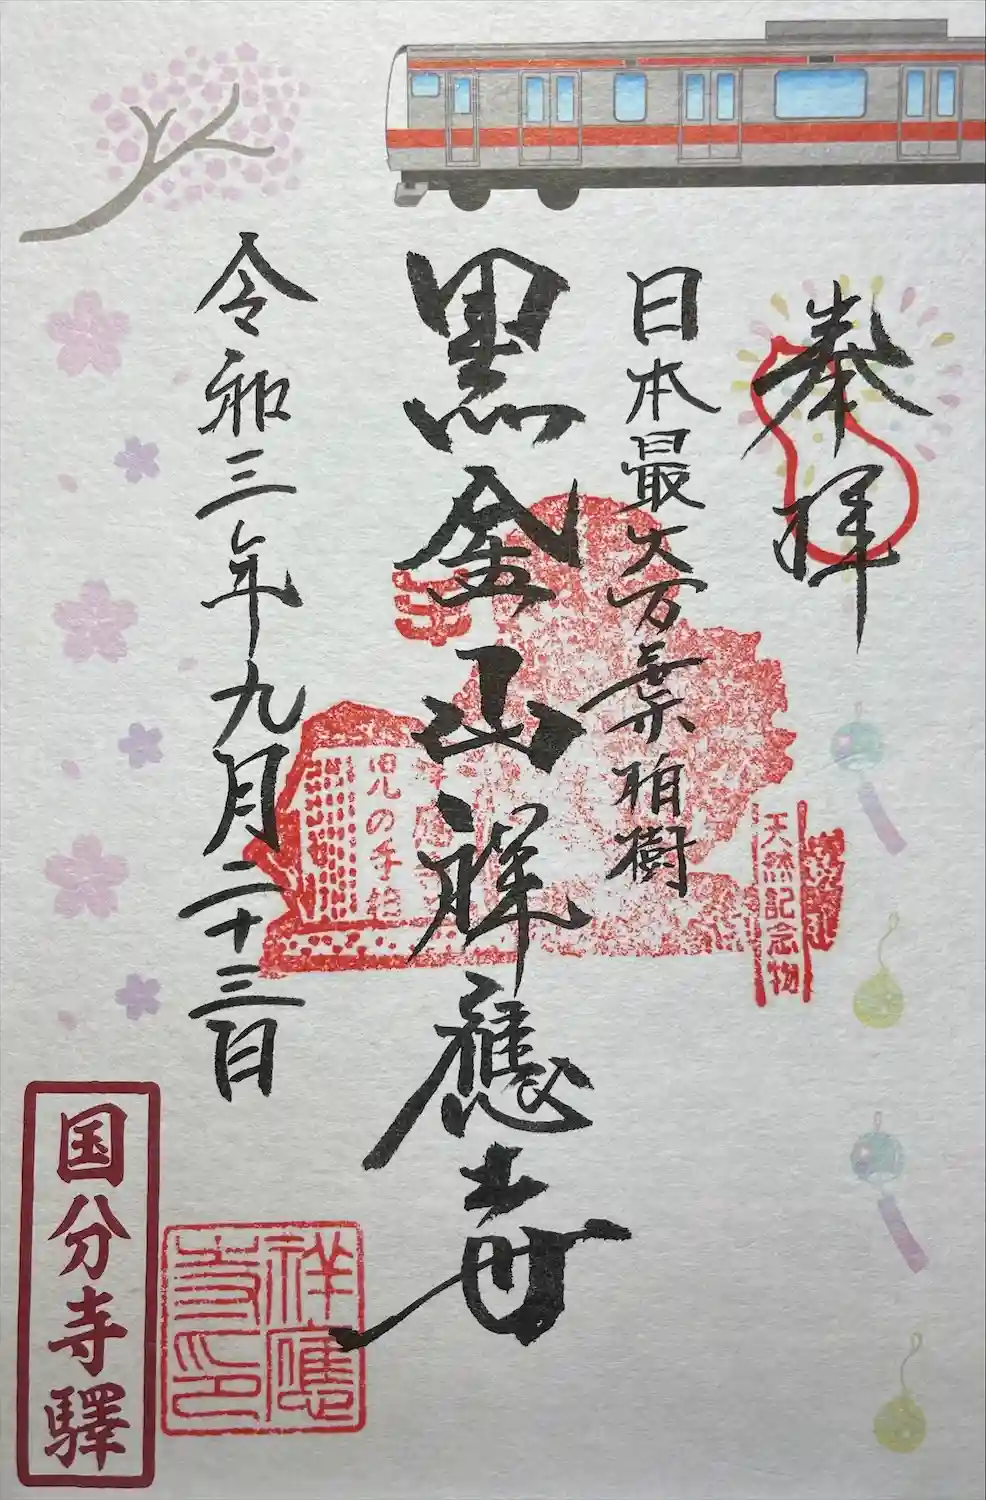 奉拝
日本最大万葉柏樹
黒金山祥應寺
令和三年九月二十三日
天然記念物
児の手柏
祥應
寺印
国分寺驛